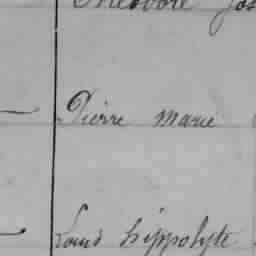 Théodore Jos
Pierre Marie
Louis hippolyte